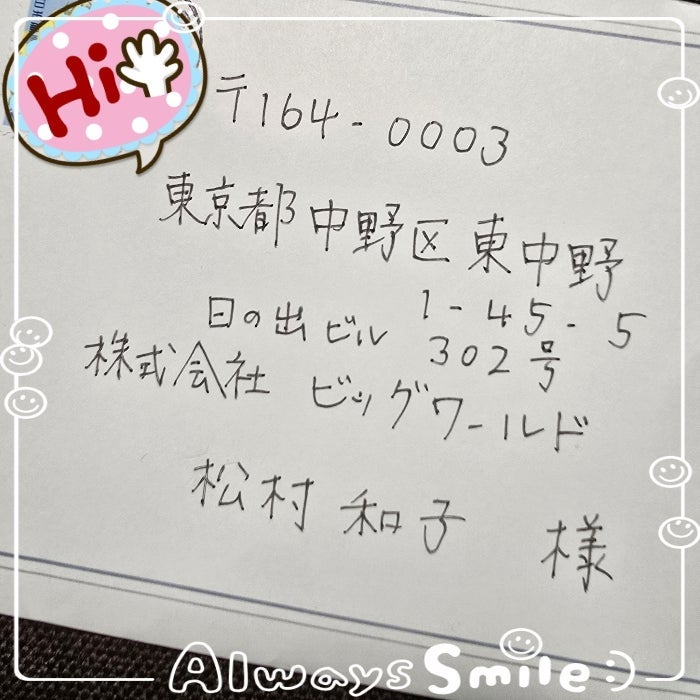 Hi
〒164-0003
東京都中野区東中野
1-45-5
日の出ビル 302号
株式会社 ビッグワールド
松村 和子 様
Always Smile:)